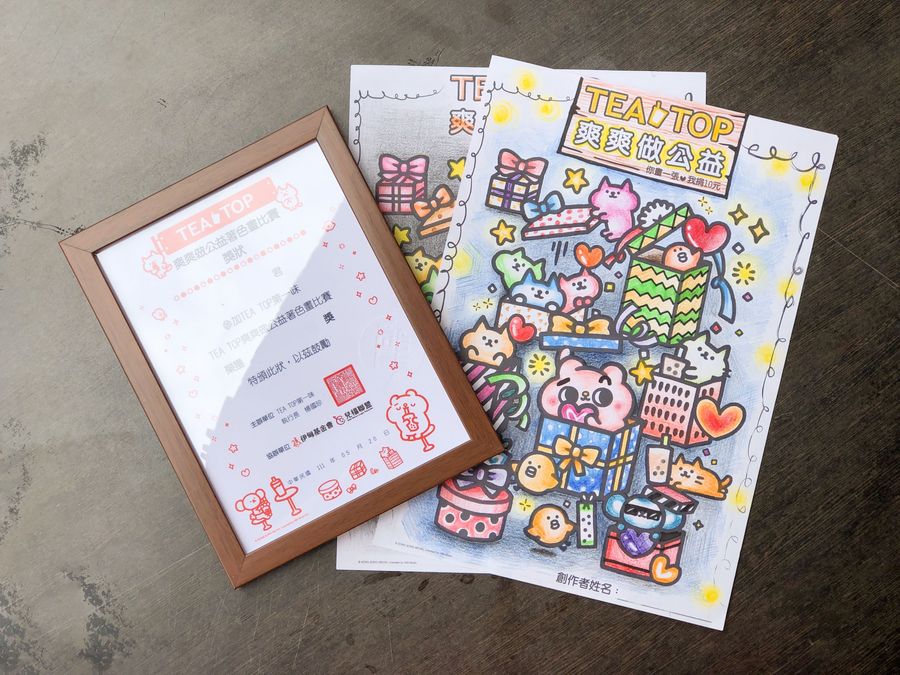 TEA TOP
爽爽做公益著色畫比賽
獎狀
君
參加TEA TOP第一味
TEA TOP爽爽做公益著色畫比賽
榮獲 獎
特頒此狀,以茲鼓勵
主辦單位 TEA TOP第一味
執行長
協辦單位 伊甸基金會 兒福聯盟
中華民國 111 年 05 月 20 日
TE
爽
TEA TOP
爽爽做公益
你畫一張♥我捐10元
創作者姓名: